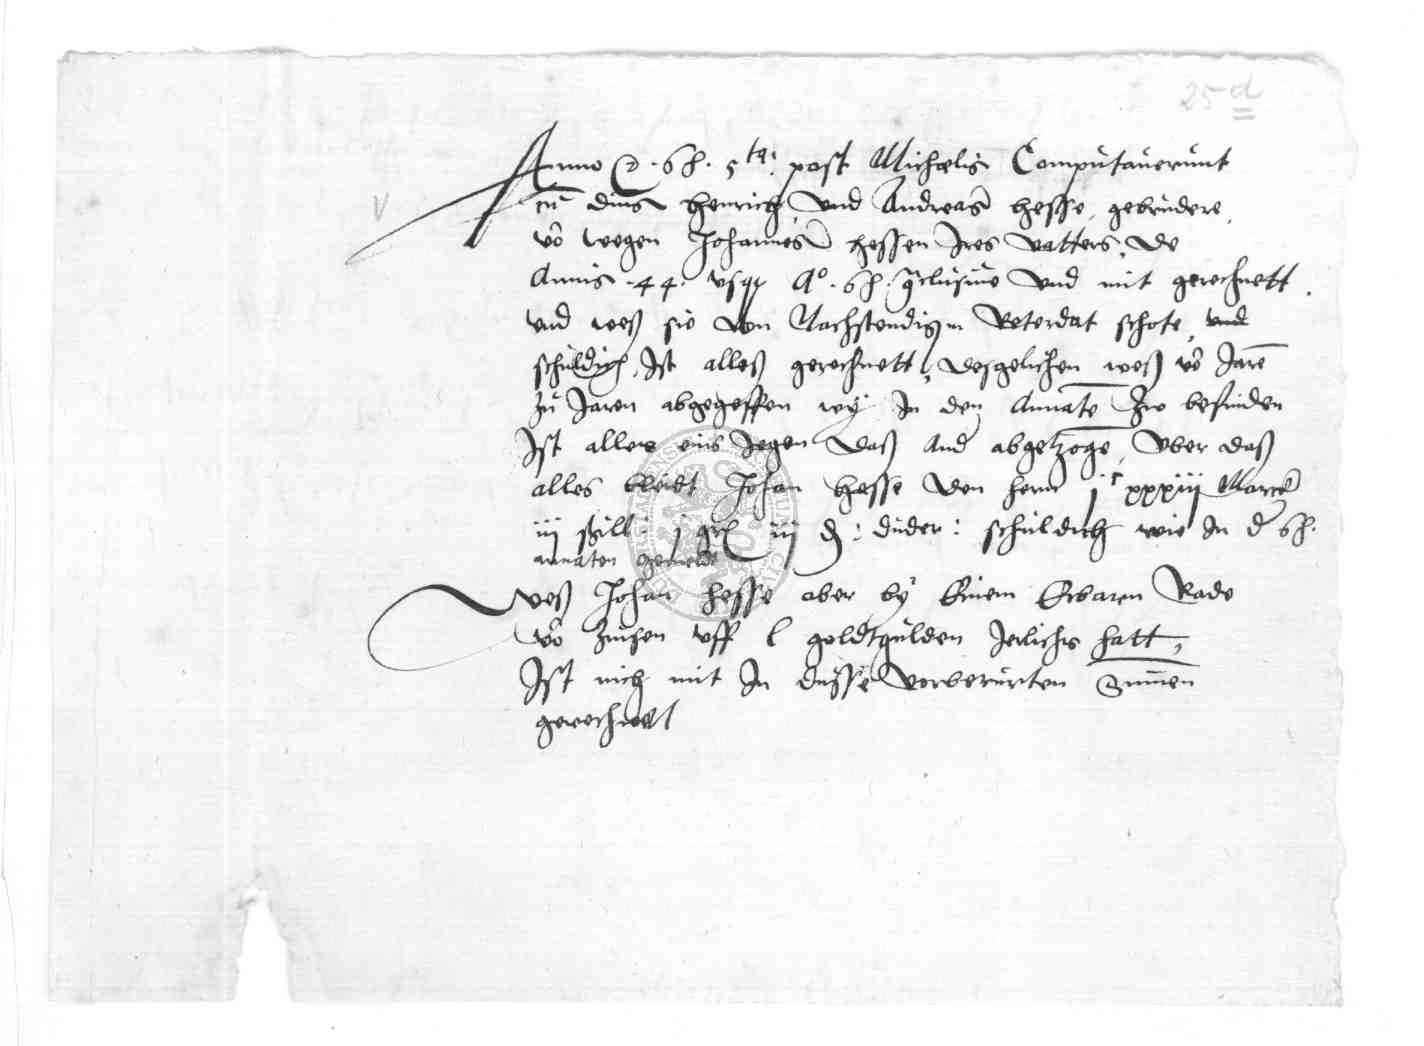 25 d
Anno 5ta post Michaelis Computaverunt
cu dnis Henrich und Andreas Hesse gebrudere,
vo wegen Johannes Hessen Ires vatters, de
Annis 44 usq Ao inclusive und mit gerechnett.
und weß sie von Nachstendigem schote, und
schuldich, Ist alles gerechnett, desgelichen weß vo Jare
zu Jaren abgegessen wy In den Annate zw befinden
Ist alles eins Jegen daß And abgetzoge, Uber daß
alles bleibt Johan Hesse den hern jc xxxiij Marck
iij ßzill: j iij d: duder: schuldich wie In d
annaten gemeldt
Weß Johan Hesse aber by Einem Erbaren Rade
vo zinsen uff l goldtgulden Jerlichs hatt,
Ist nich mit In dusse vorberurten Summen
gerechnett